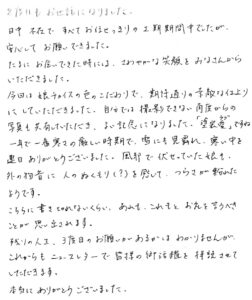 2度目もお世話になりました。
日中 不在で すべてお任せっきりの2期期間中でしたが、
安心して お願いできました。
たまにお会いできた時には、さわやかな笑顔をみなさんから
いただきました。
今回は娘チョイスの色のこだわりで、期待通りの素敵な仕上がり
にしていただきました。自分では撮影できない角度からの
写真も共有していただき、よい記念になりました。
一年で一番寒さの厳しい時期で、雪にも見舞れ、寒い中を
連日ありがとうございました。風邪で伏せっていた娘も、
外の物音に 人のぬくもり(?)を感じて、つらさが薄れた
ようです。
こちらに書ききれないくらい、あれも、これもと お礼を言うべき
ことが 思い出されます。
残りの人生、3度目のお願いがあるかは わかりませんが、
これからも ニュースレターで 皆様の御活躍を 拝読させて
いただきます。
本当に ありがとうございました。